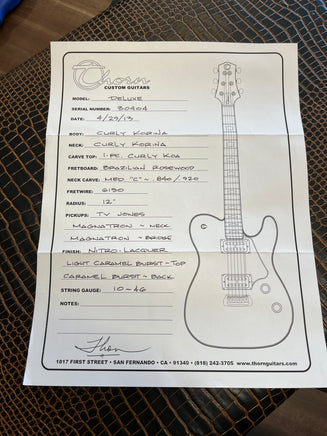 Thorn
CUSTOM GUITARS
MODEL: DELUXE
SERIAL NUMBER: 30404
DATE: 4/29/13
BODY: CURLY KORINA
NECK: CURLY KORINA
CARVE TOP: 1-PC. CURLY KOA
FRETBOARD: BRAZILIAN ROSEWOOD
NECK CARVE: MED. "C" ~ .840/.920
FRETWIRE: 6150
RADIUS: 12"
PICKUPS: TV JONES
MAGNATRON ~ NECK
MAGNATRON ~ BRIDGE
FINISH: NITRO. LACQUER
LIGHT CARAMEL BURST ~ TOP
CARAMEL BURST ~ BACK
STRING GAUGE: 10-46
NOTES:
Thorn
1817 FIRST STREET • SAN FERNANDO • CA • 91340 • (818) 242-3705 www.thornguitars.com